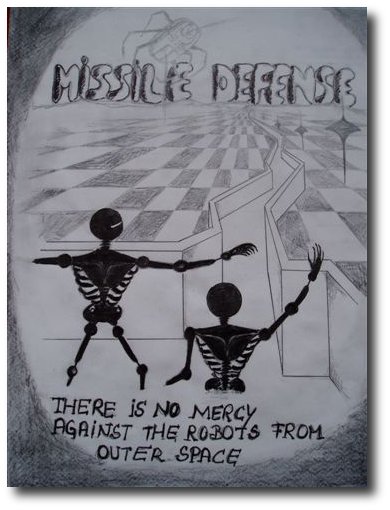 MISSILE DEFENSE
THERE IS NO MERCY
AGAINST THE ROBOTS FROM
OUTER SPACE